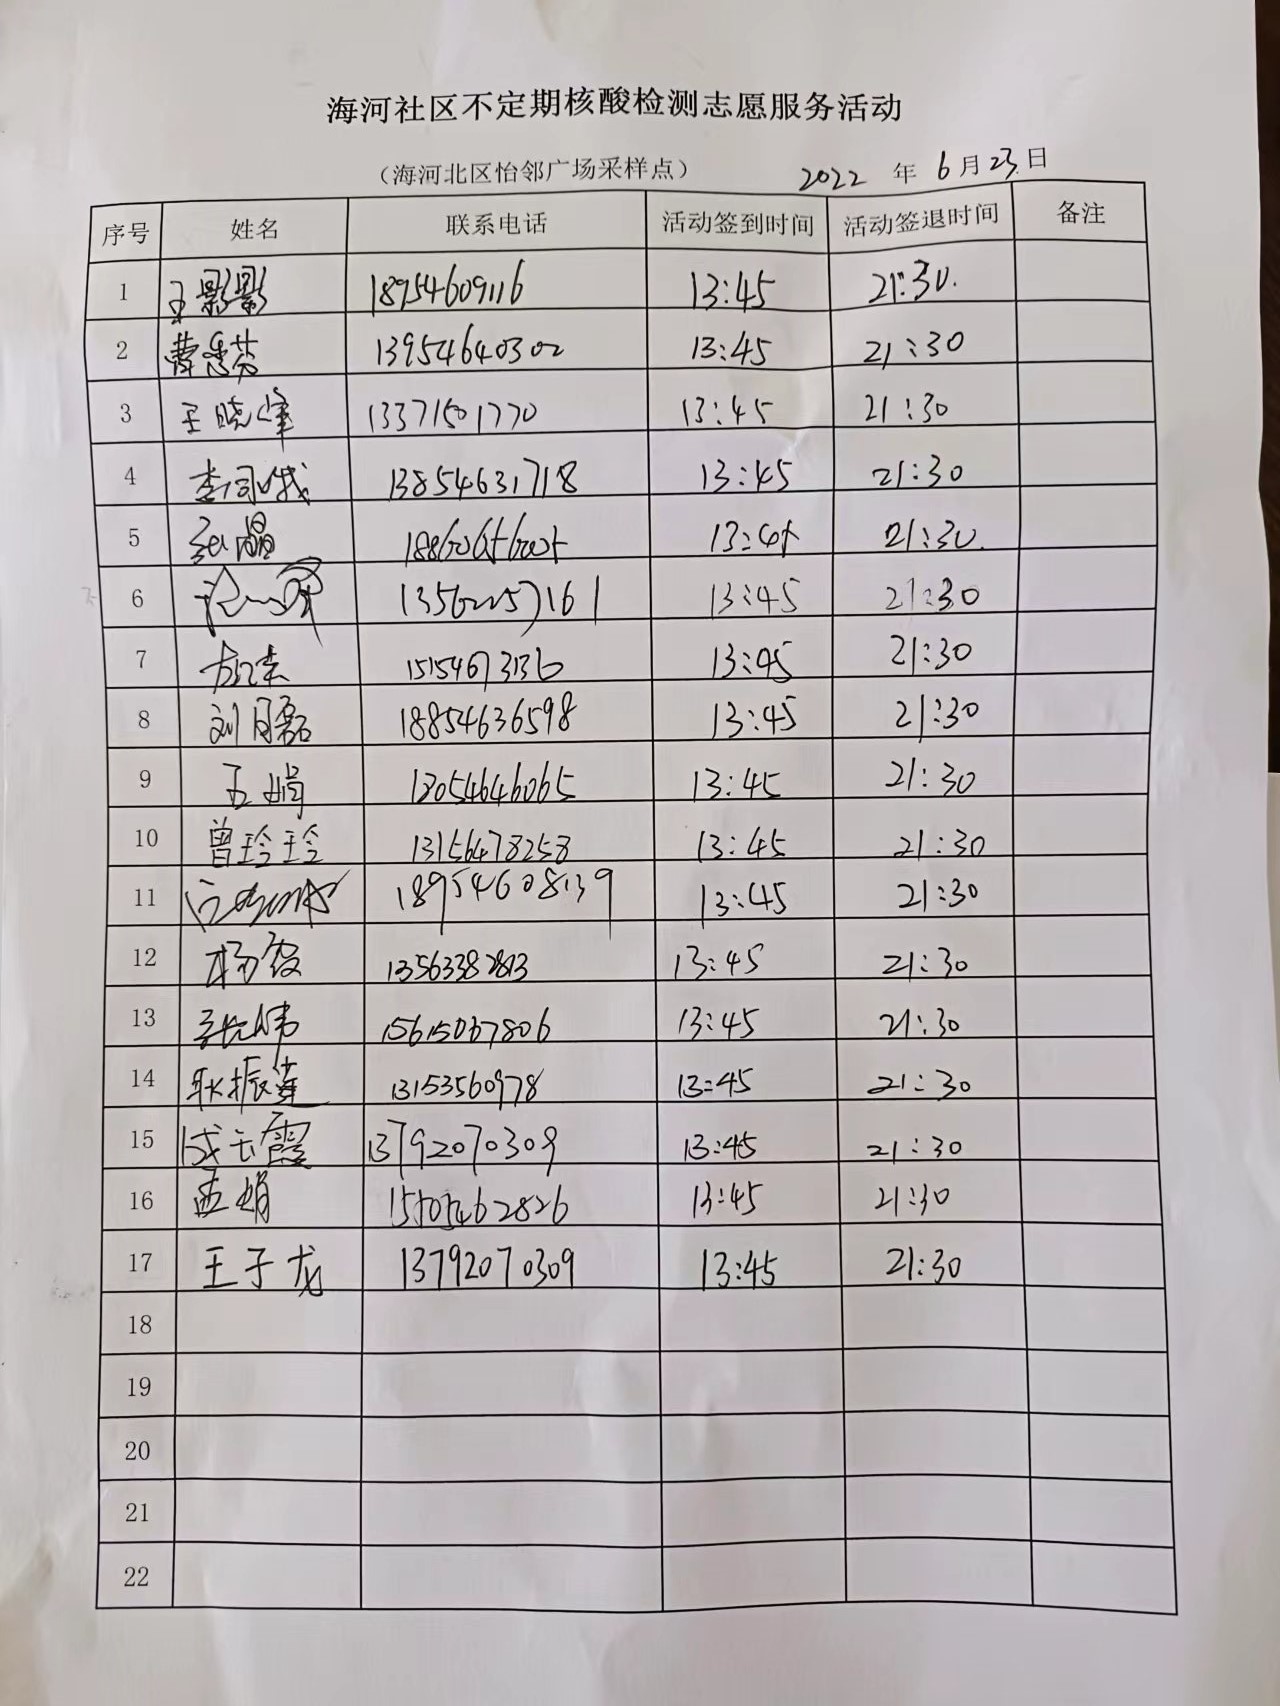 海河社区不定期核酸检测志愿服务活动
（海河北区怡邻广场采样点） 2022 年 6月23日
序号 姓名 联系电话 活动签到时间 活动签退时间 备注
1 王影影 18954609116 13:45 21:30.
2 曹秀芬 13954640302 13:45 21:30
3 王晓峰 13371501770 13:45 21:30
4 13854631718 13:45 21:30
5 张晶 13:45 21:30.
6 13:45 21:30
7 15154673136 13:45 21:30
8 刘月磊 18854636598 13:45 21:30
9 王娟 13054646065 13:45 21:30
10 曾玲玲 13156478258 13:45 21:30
11 18954608139 13:45 21:30
12 杨霞 13563382813 13:45 21:30
13 张伟 15615067806 13:45 21:30
14 耿振莲 13153560978 13:45 21:30
15 成云霞 13792070309 13:45 21:30
16 孟娟 15105462826 13:45 21:30
17 王子龙 13792070309 13:45 21:30
18
19
20
21
22